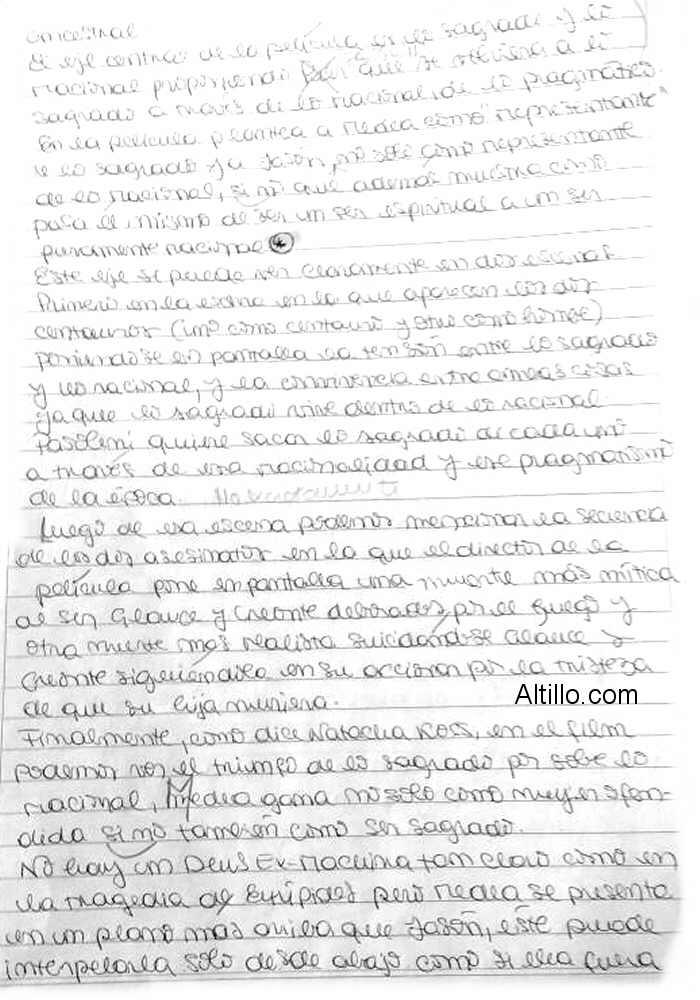 ancestral
El eje central de la película es lo sagrado y lo
racional proponiendo que se reviera a lo
sagrado a través de lo racional, de lo pragmático.
En la película plantea a Medea como "representante"
de lo sagrado y a Jasón, no solo como representante
de lo racional, si no que además muestra como
pasa el mismo de ser un ser espiritual a un ser
puramente racional *
Este eje se puede ver claramente en dos escenas.
Primero en la escena en la que aparecen los dos
centauros (uno como centauro y otro como hombre)
poniendose en pantalla la tensión entre lo sagrado
y lo racional, y la convivencia entre ambas cosas
ya que lo sagrado vive dentro de lo racional.
Pasolini quiere sacar lo sagrado de cada uno
a través de esa racionalidad y ese pragmatismo
de la época.
Luego de esa escena podemos mencionar la secuencia
de los dos asesinatos en la que el director de la
película pone en pantalla una muerte más mítica
al ser Glauce y Creonte deborados por el fuego y
otra muerte mas realista suicidandose Glauce y
Creonte siguiendola en su accionar por la tristeza
de que su hija muriera.
Altillo.com
Finalmente, como dice Natacha Koss, en el film
podemos ver el triunfo de lo sagrado por sobre lo
racional, Medea gana no solo como mujer ofen-
dida si no también como ser sagrado.
No hay un Deus Ex-Machina tan claro como en
la tragedia de Eurípides pero Medea se presenta
en un plano mas arriba que Jasón, este puede
interpelarla solo desde abajo como si ella fuera